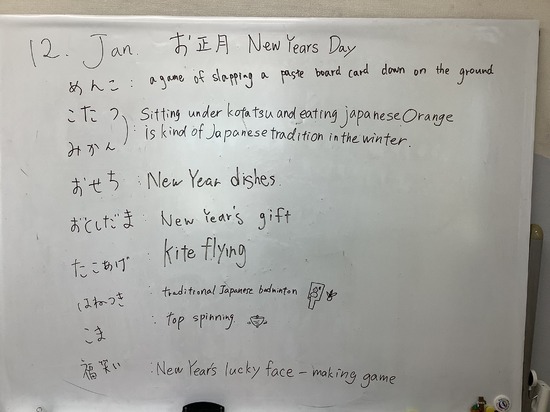 12. Jan. お正月 New Years Day
めんこ : a game of slapping a paste board card down on the ground
こたつ : Sitting under kotatsu and eating japanese Orange
みかん is kind of Japanese tradition in the winter.
おせち : New Year dishes.
おとしだま : New Year's gift
たこあげ : kite flying
はねつき : traditional Japanese badminton
こま : top spinning.
福笑い : New Year's lucky face - making game